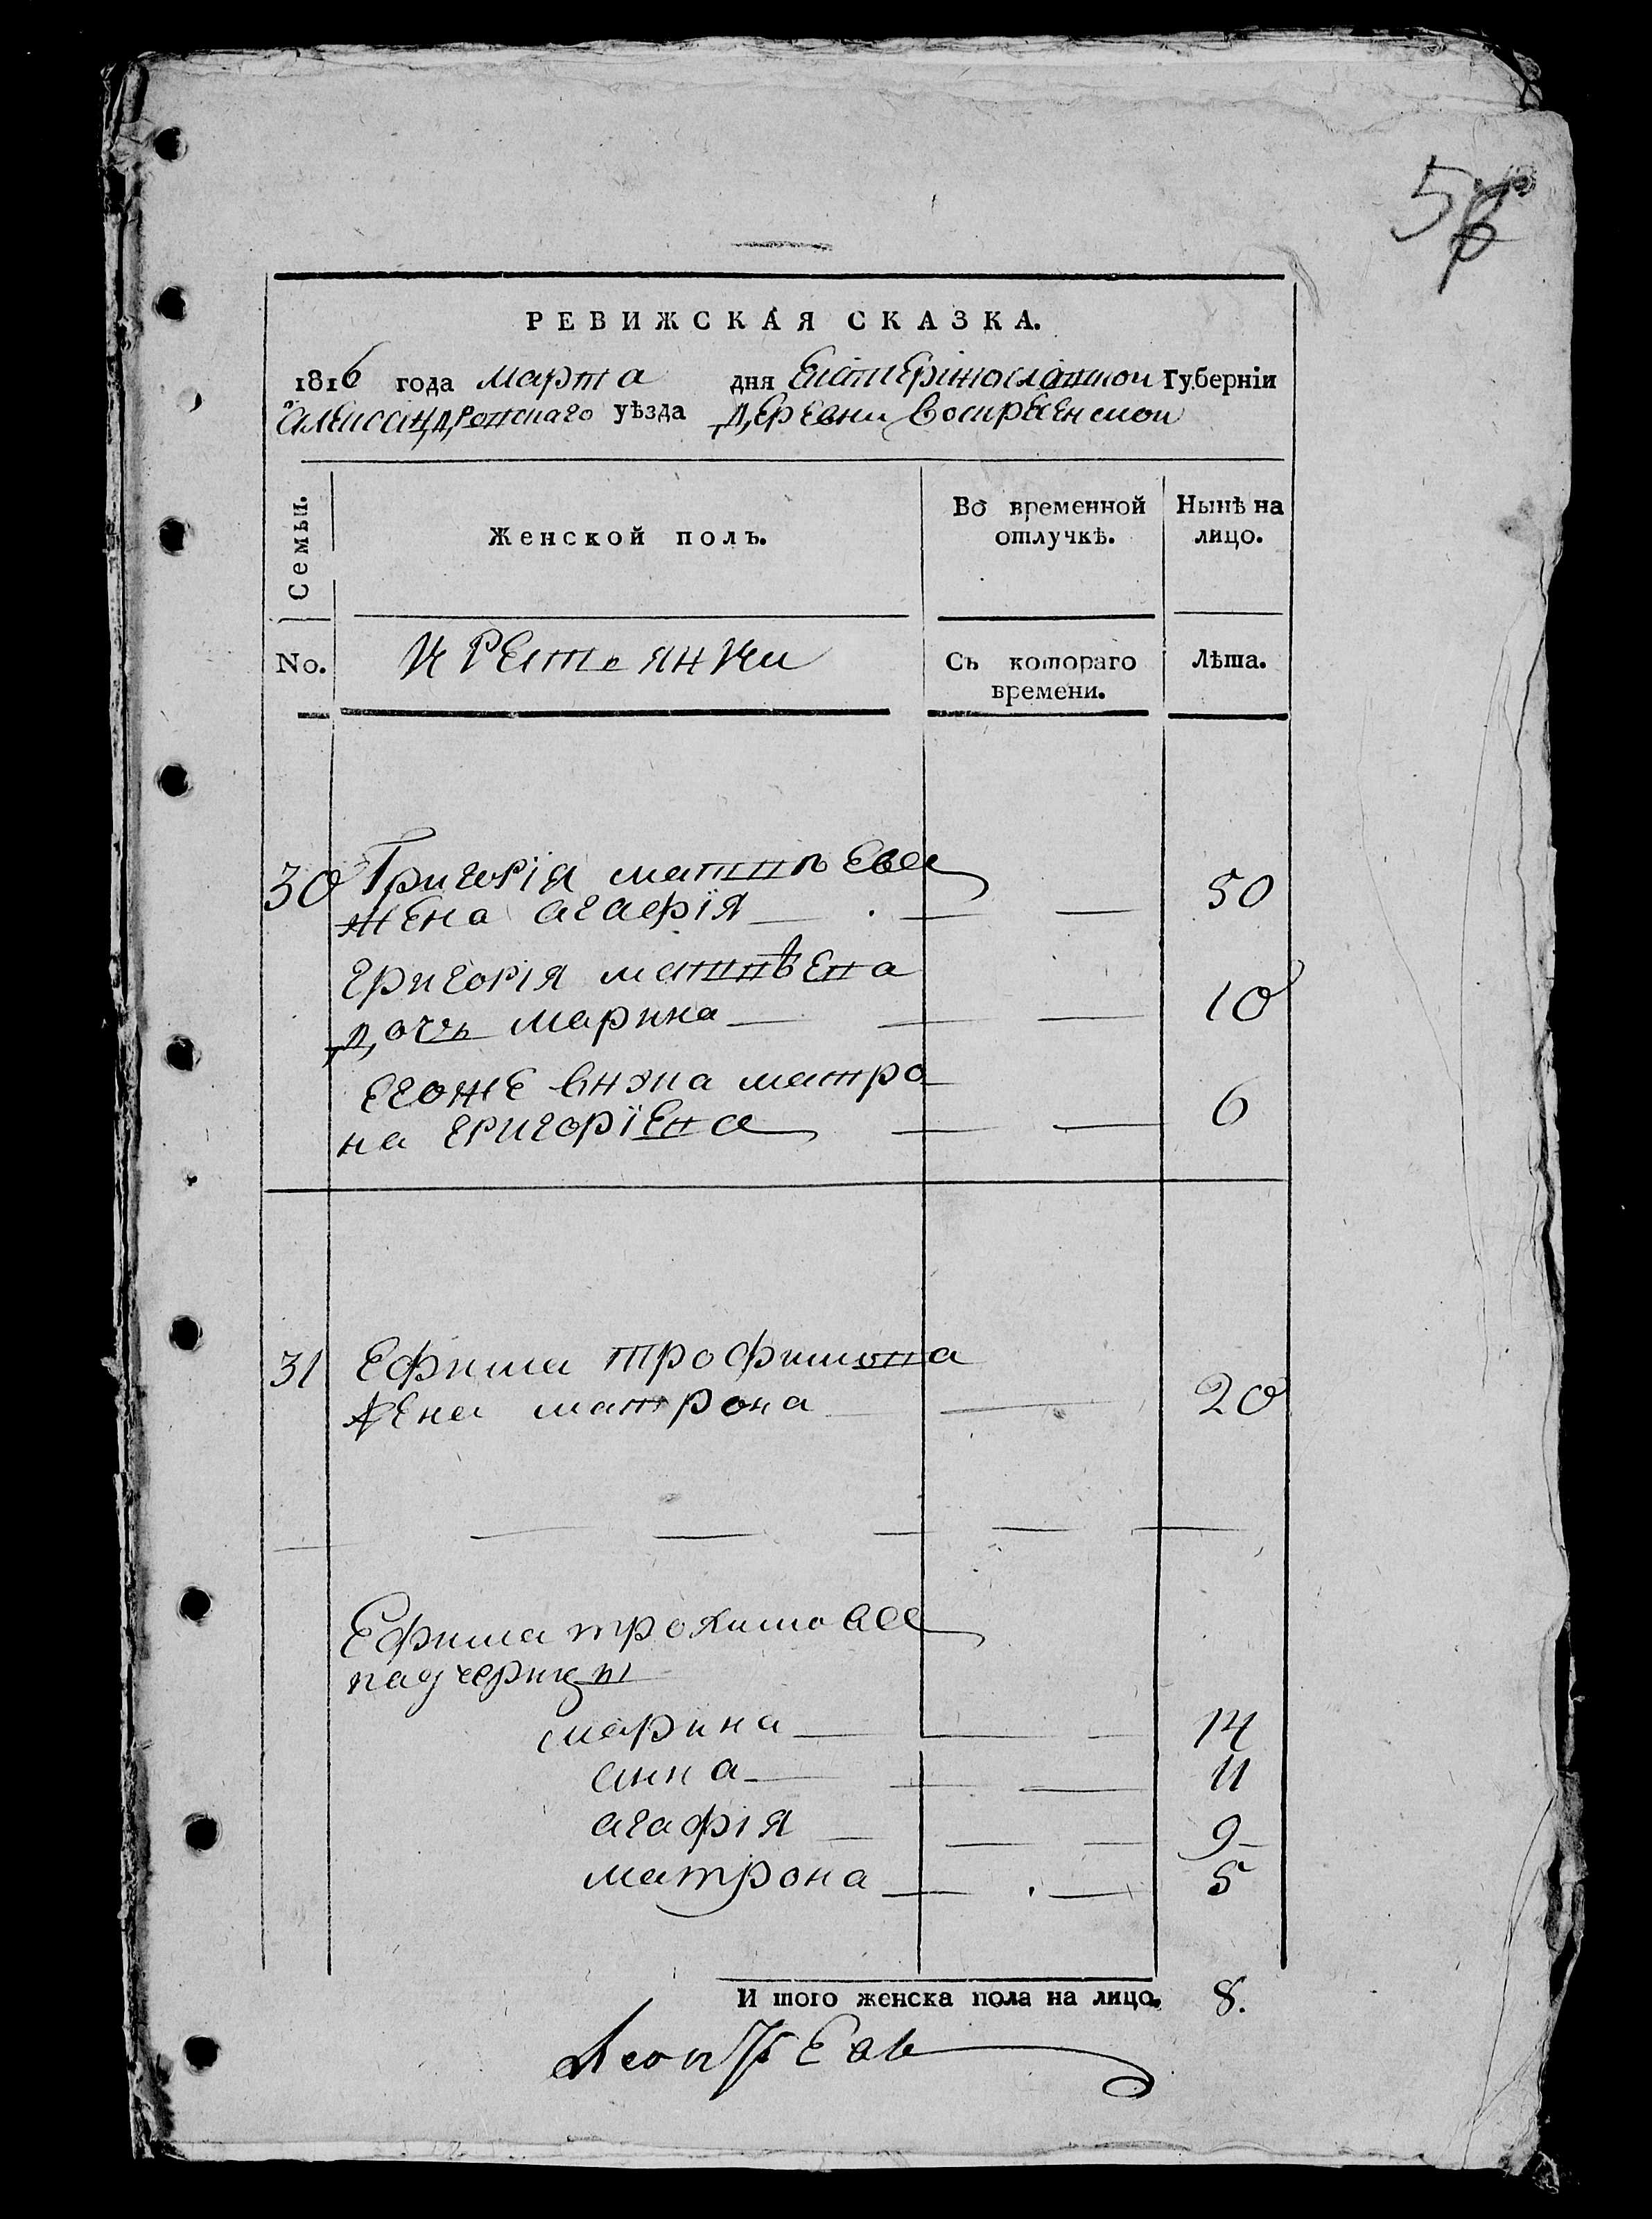 56
РЕВИЖСКАЯ СКАЗКА.
1816 года марта дня Екатеринославской Губерніи
Александровскаго уѣзда деревни Воскресенской
Семьи.
Женской полъ.
Во временной отлучкѣ.
Нынѣ на лицо.
No.
крестьянки
Съ котораго времени.
Лѣта.
30 Григорія матвѣева
жена агафія — — 50
григорія матвѣева
дочь марина — — 10
егоже внука матро
на григоріева — — 6
31 Ефима трофимова
жена матрона — 20
Ефима трохимова
падчерицы
марина — — 14
анна — — 11
агафія — — 9
матрона — — 5
И того женска пола на лицо. 8.